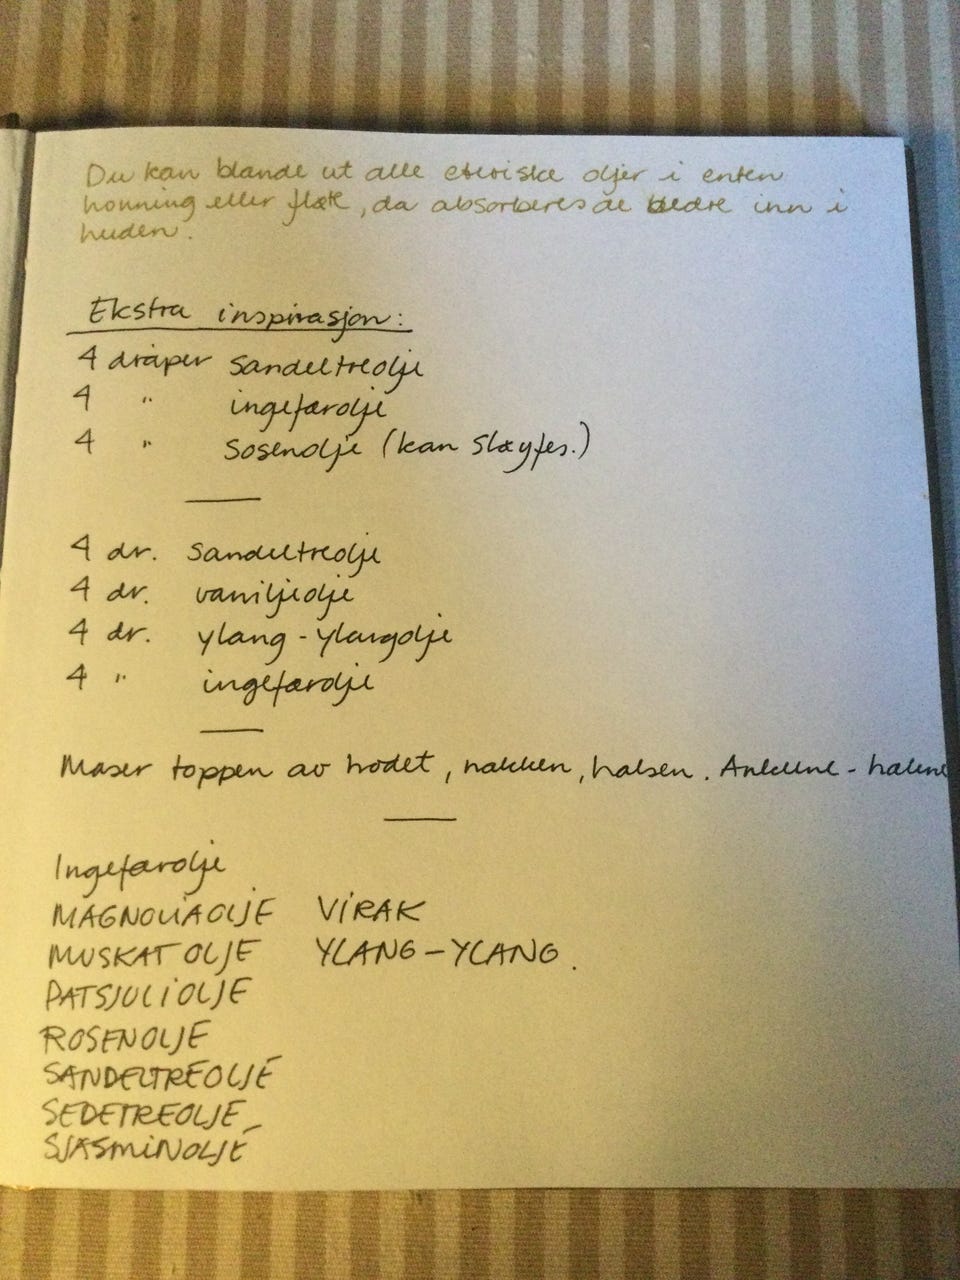 Du kan blande ut alle eteriske oljer i enten
honning eller fløte, da absorberes de bedre inn i
huden.
Ekstra inspirasjon:
4 dråper sandeltreolje
4 " ingefærolje
4 " Sosenolje (kan sløyfes.)
4 dr. sandeltreolje
4 dr. vaniljeolje
4 dr. ylang-ylangolje
4 " ingefærolje
Maser toppen av hodet, nakken, halsen. Anklene - hælene
Ingefærolje
MAGNOLIAOLJE VIRAK
MUSKATOLJE YLANG-YLANG.
PATSJULIOLJE
ROSENOLJE
SANDELTREOLJE
SEDETREOLJE
SJASMINOLJE